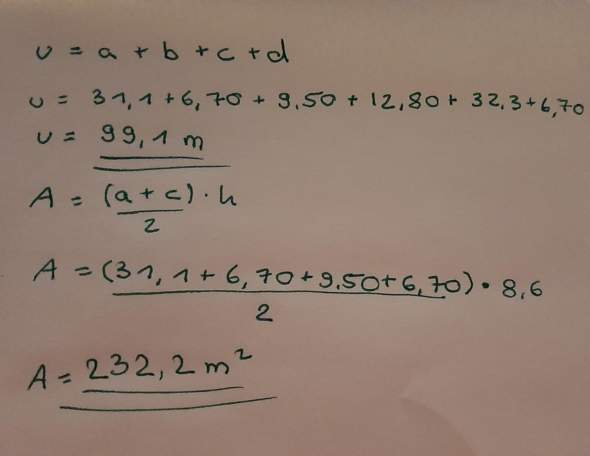 u = a + b + c + d
u = 31,1 + 6,70 + 9,50 + 12,80 + 32,3 + 6,70
u = 99,1 m
A = (a + c) · h
2
A = (31,1 + 6,70 + 9,50 + 6,70) · 8,6
2
A = 232,2 m²